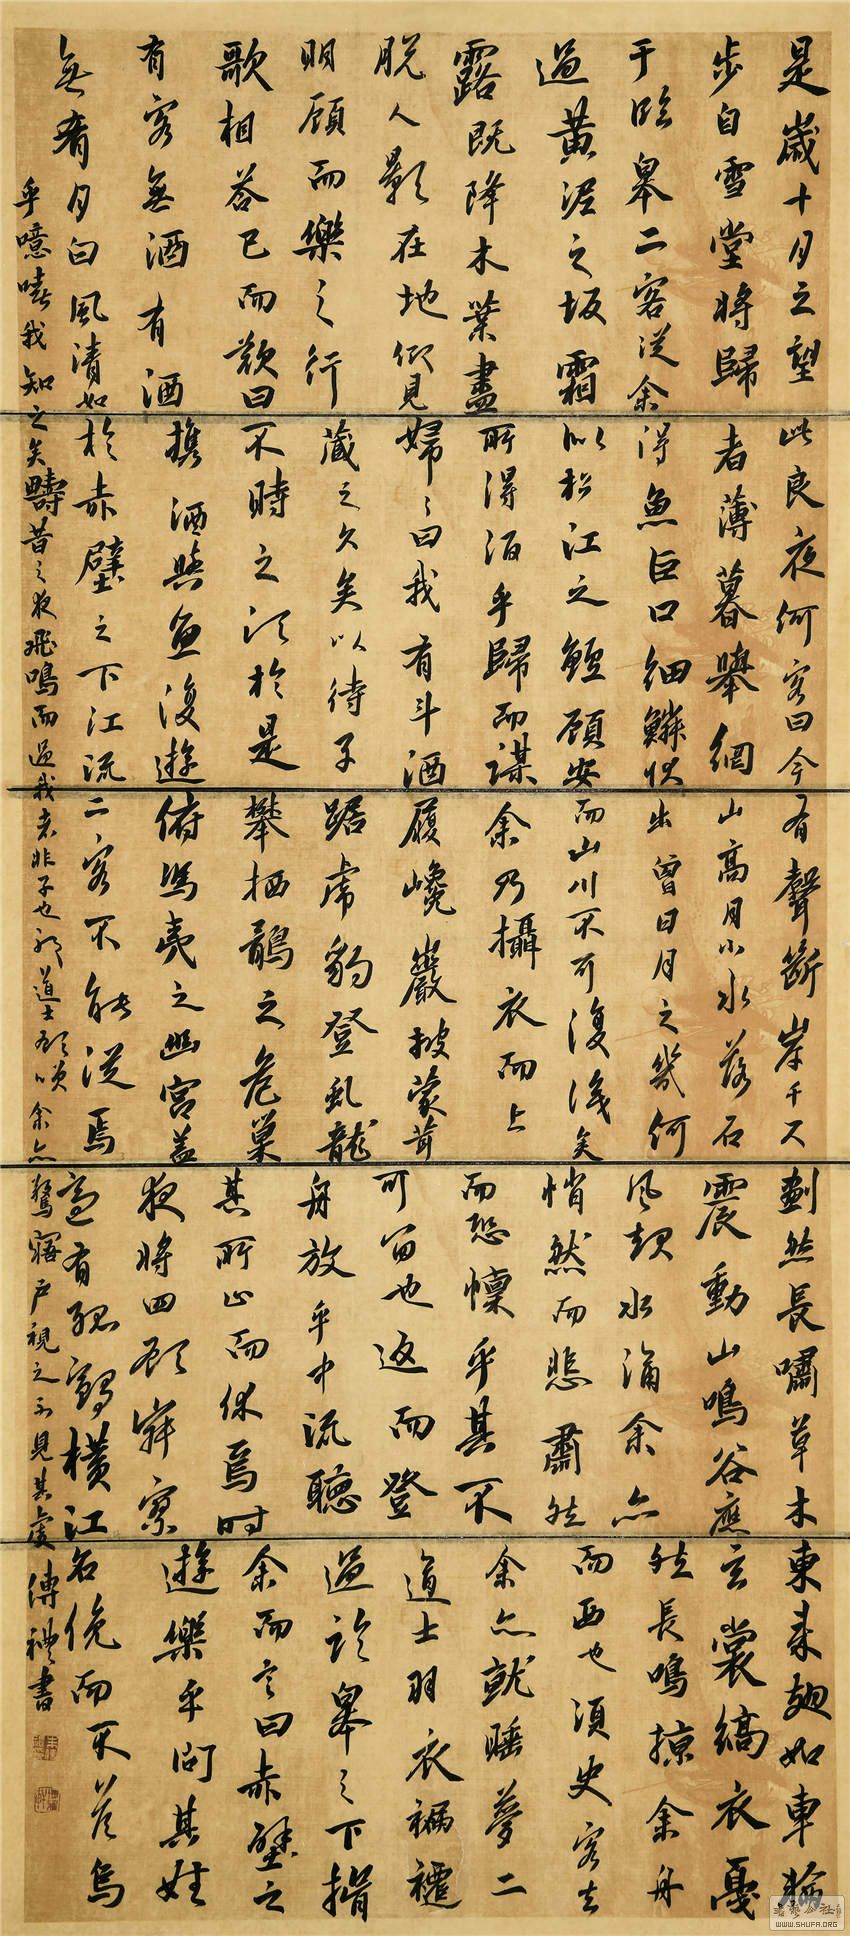 是歲十月之望
步自雪堂將歸
于臨皋二客從余
過黃泥之坂霜
露既降木葉盡
脫人影在地仰見
明顧而樂之行
歌相答已而歎曰
有客無酒有酒
無肴月白風清如
此良夜何客曰今
者薄暮舉網
得魚巨口細鱗狀
似松江之鱸顧安
所得酒乎歸而謀
婦〻曰我有斗酒
藏之久矣以待子
不時之須於是
攜酒與魚復遊
於赤壁之下江流
有聲斷岸千尺
山高月小水落石
出曾日月之幾何
而山川不可復識矣
余乃攝衣而上
履巉巖披蒙茸
踞虎豹登虬龍
攀栖鶻之危巢
俯馮夷之幽宮蓋
二客不能從焉
劃然長嘯草木
震動山鳴谷應
風起水涌余亦
悄然而悲肅然
而恐懍乎其不
可留也返而登
舟放乎中流聽
其所止而休焉時
夜將四顧寂寥
適有孤鶴橫江
東來翅如車輪
玄裳縞衣戛
然長鳴掠余舟
而西也須臾客去
余亦就睡夢二
道士羽衣褊褼
過臨皋之下揖
余而言曰赤壁之
遊樂乎問其姓
名俛而不答烏
乎噫嘻我知之矣疇昔之夜飛鳴而過我者非子也耶道士顧笑余亦驚寤戶視之不見其處 傅禮書
WWW.SHUFA.ORG